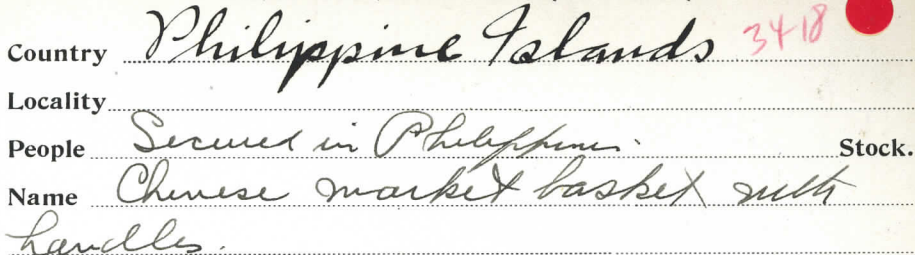 Country Philippine Islands 3418
Locality
People Secured in Philippines. Stock.
Name Chinese market basket with
handles.